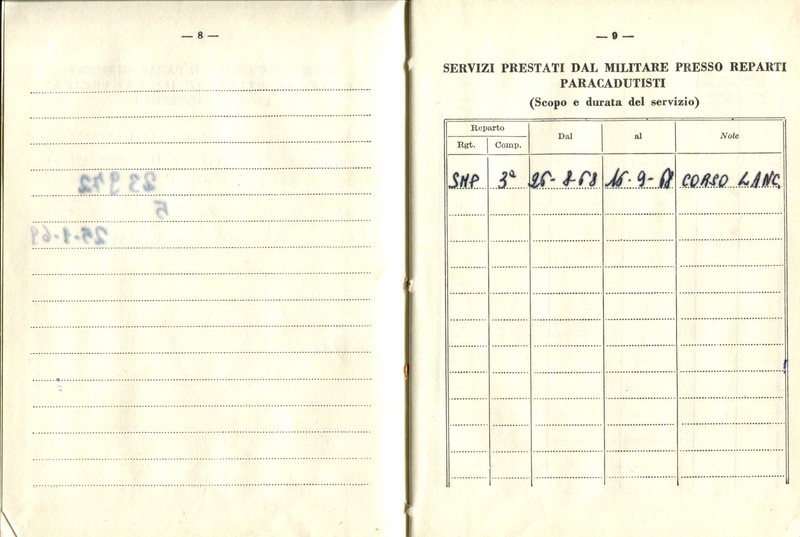 — 8 —
23972
5
25-1-69
— 9 —
SERVIZI PRESTATI DAL MILITARE PRESSO REPARTI
PARACADUTISTI
(Scopo e durata del servizio)
Reparto Dal al Note
Rgt. Comp.
SMP 3ª 25-8-68 15-9-68 CORSO LANC.